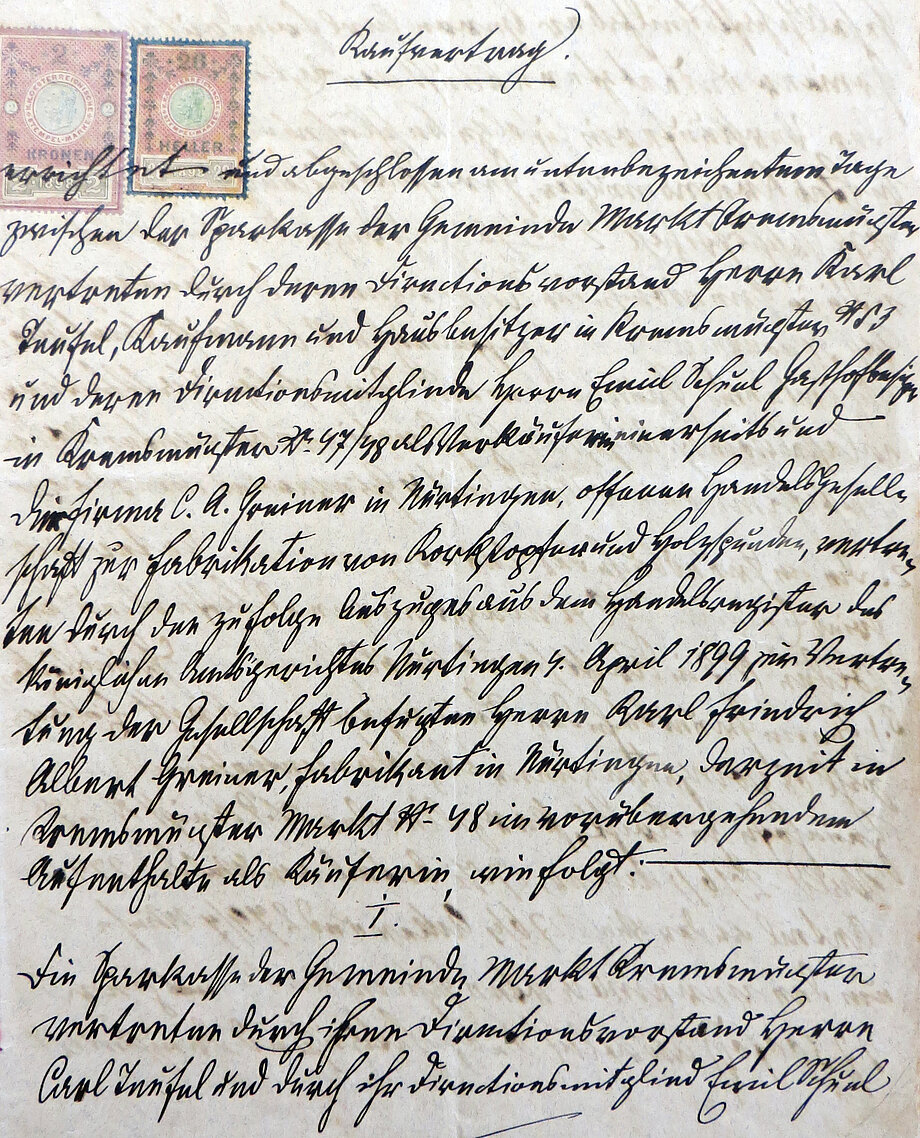 Kaufvertrag.
2
K.K. ÖSTERREICHISCHE
STEMPEL-MARKE
KRONEN
20
HELLER
errichtet und abgeschlossen am untenbezeichneten Tage
zwischen der Sparkasse der Gemeinde Markt Kremsmünster
vertreten durch deren Directionsvorstand Herrn Karl
Teufel, Kaufmann und Hausbesitzer in Kremsmünster № 53
und deren Directionsmitgliede Herrn Emil Schuel Gasthofbesitzer
in Kremsmünster № 47/48 als Verkäuferin einerseits und
die Firma C. A. Greiner in Nürtingen, offenen Handelsgesell-
schaft zur Fabrikation von Korkstopfer und Holzspunden, vertre-
ten durch den zufolge Auszuges aus dem Handelsregister des
königlichen Amtsgerichtes Nürtingen 4. April 1899 zur Vertre-
tung der Gesellschaft befugten Herrn Karl Friedrich
Albert Greiner, Fabrikant in Nürtingen, derzeit in
Kremsmünster Markt № 48 im vorübergehendem
Aufenthalte als Käuferin, wie folgt:
I.
Die Sparkasse der Gemeinde Markt Kremsmünster
vertreten durch ihren Directionsvorstand Herrn
Carl Teufel und durch ihr Directionsmitglied Emil Schuel